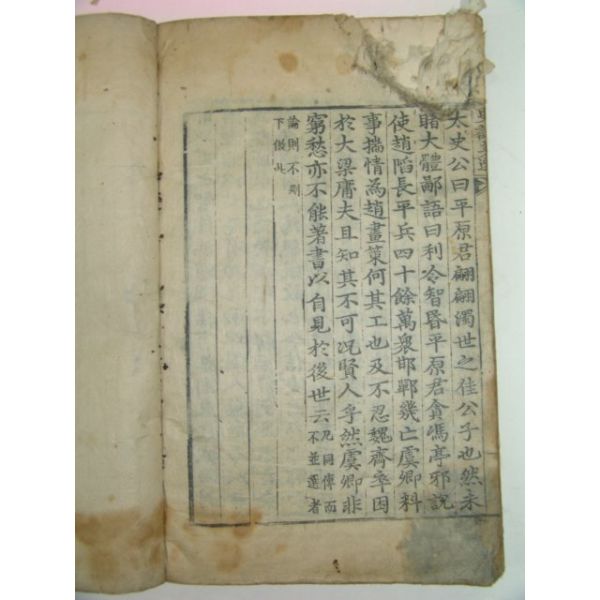 太史公曰平原君翩翩濁世之佳公子也然未
睹大體鄙語曰利令智昏平原君貪馮亭邪說
使趙陷長平兵四十餘萬衆邯鄲幾亡虞卿料
事揣情爲趙畫策何其工也及不忍魏齊卒困
於大梁庸夫且知其不可況賢人乎然虞卿非
窮愁亦不能著書以自見於後世云凡同傳而
不並選者
論則不刪
下倣此